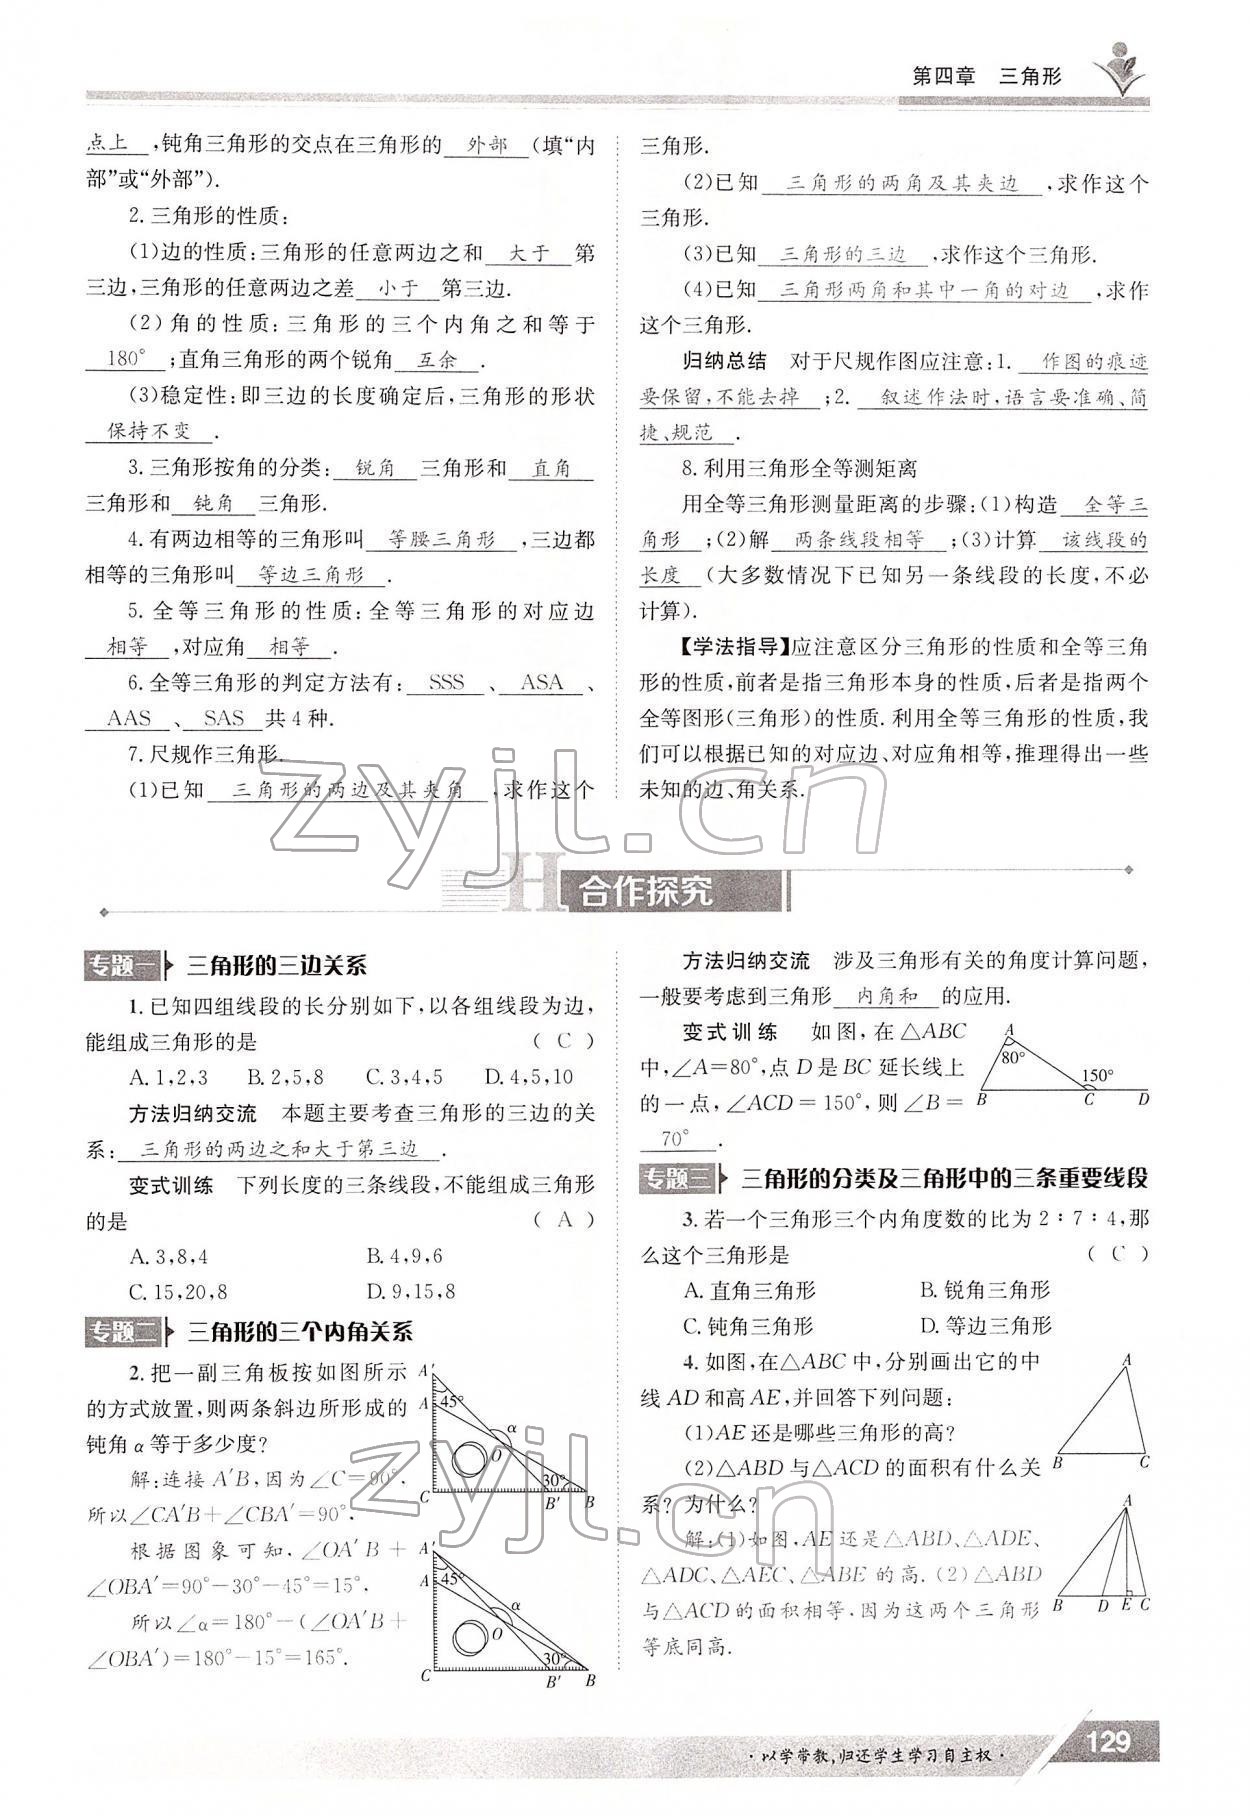 第四章 三角形
点上,钝角三角形的交点在三角形的 外部 (填“内
部”或“外部”).
2. 三角形的性质:
(1)边的性质:三角形的任意两边之和 大于 第
三边,三角形的任意两边之差 小于 第三边.
(2)角的性质:三角形的三个内角之和等于
180° ;直角三角形的两个锐角 互余 .
(3)稳定性:即三边的长度确定后,三角形的形状
保持不变 .
3. 三角形按角的分类: 锐角 三角形和 直角
三角形和 钝角 三角形.
4. 有两边相等的三角形叫 等腰三角形 ,三边都
相等的三角形叫 等边三角形 .
5. 全等三角形的性质:全等三角形的对应边
相等 ,对应角 相等 .
6. 全等三角形的判定方法有: SSS 、 ASA 、
AAS 、 SAS 共4种.
7. 尺规作三角形.
(1)已知 三角形的两边及其夹角 ,求作这个
三角形.
(2)已知 三角形的两角及其夹边 ,求作这个
三角形.
(3)已知 三角形的三边 ,求作这个三角形.
(4)已知 三角形两角和其中一角的对边 ,求作
这个三角形.
归纳总结 对于尺规作图应注意:1. 作图的痕迹
要保留,不能去掉 ;2. 叙述作法时,语言要准确、简
捷、规范 .
8. 利用三角形全等测距离
用全等三角形测量距离的步骤:(1)构造 全等三
角形 ;(2)解 两条线段相等 ;(3)计算 该线段的
长度 (大多数情况下已知另一条线段的长度,不必
计算).
【学法指导】应注意区分三角形的性质和全等三角
形的性质,前者是指三角形本身的性质,后者是指两个
全等图形(三角形)的性质. 利用全等三角形的性质,我
们可以根据已知的对应边、对应角相等,推理得出一些
未知的边、角关系.
zyjl.cn
H 合作探究
专题一 三角形的三边关系
1. 已知四组线段的长分别如下,以各组线段为边,
能组成三角形的是 ( C )
A. 1,2,3 B. 2,5,8 C. 3,4,5 D. 4,5,10
方法归纳交流 本题主要考查三角形的三边的关
系: 三角形的两边之和大于第三边 .
变式训练 下列长度的三条线段,不能组成三角形
的是 ( A )
A. 3,8,4 B. 4,9,6
C. 15,20,8 D. 9,15,8
专题二 三角形的三个内角关系
2. 把一副三角板按如图所示
的方式放置,则两条斜边所形成的
钝角α等于多少度?
解:连接A′B,因为∠C=90°,
所以∠CA′B+∠CBA′=90°.
根据图象可知,∠OA′B+
∠OBA′=90°-30°-45°=15°.
所以∠α=180°-(∠OA′B+
∠OBA′)=180°-15°=165°.
A′
A 45°
α
O
30°
C B′ B
A′
A 45°
α
O
30°
C B′ B
zyjl.cn
方法归纳交流 涉及三角形有关的角度计算问题,
一般要考虑到三角形 内角和 的应用.
变式训练 如图,在△ABC
中,∠A=80°,点D是BC延长线上
的一点,∠ACD=150°,则∠B=
70° .
A
80° 150°
B C D
专题三 三角形的分类及三角形中的三条重要线段
3. 若一个三角形三个内角度数的比为2∶7∶4,那
么这个三角形是 ( C )
A. 直角三角形 B. 锐角三角形
C. 钝角三角形 D. 等边三角形
4. 如图,在△ABC中,分别画出它的中
线AD和高AE,并回答下列问题:
(1)AE还是哪些三角形的高?
(2)△ABD与△ACD的面积有什么关
系?为什么?
解:(1)如图,AE还是△ABD、△ADE、
△ADC、△AEC、△ABE的高. (2)△ABD
与△ACD的面积相等,因为这两个三角形
等底同高.
A
B C
A
B D E C
·以学带教,归还学生学习自主权·
129